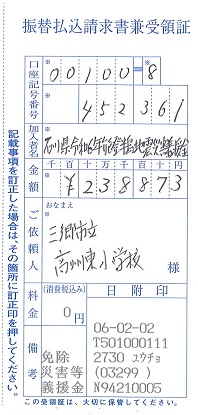 振替払込請求書兼受領証
口座記号番号
00100-8
452361
加入者名
石川県令和6年能登半島地震災害義援金
金額
千百十万千百十円
¥238873
ご依頼人
おなまえ
三郷市立
高州東小学校
様
料金
(消費税込み)
0円
日附印
備考
免除
災害等
義援金
06-02-02
T501000111
2730 ユウチョ
(03299)
N94210005
この受領証は、大切に保管してください。
記載事項を訂正した場合は、その箇所に訂正印を押してください。